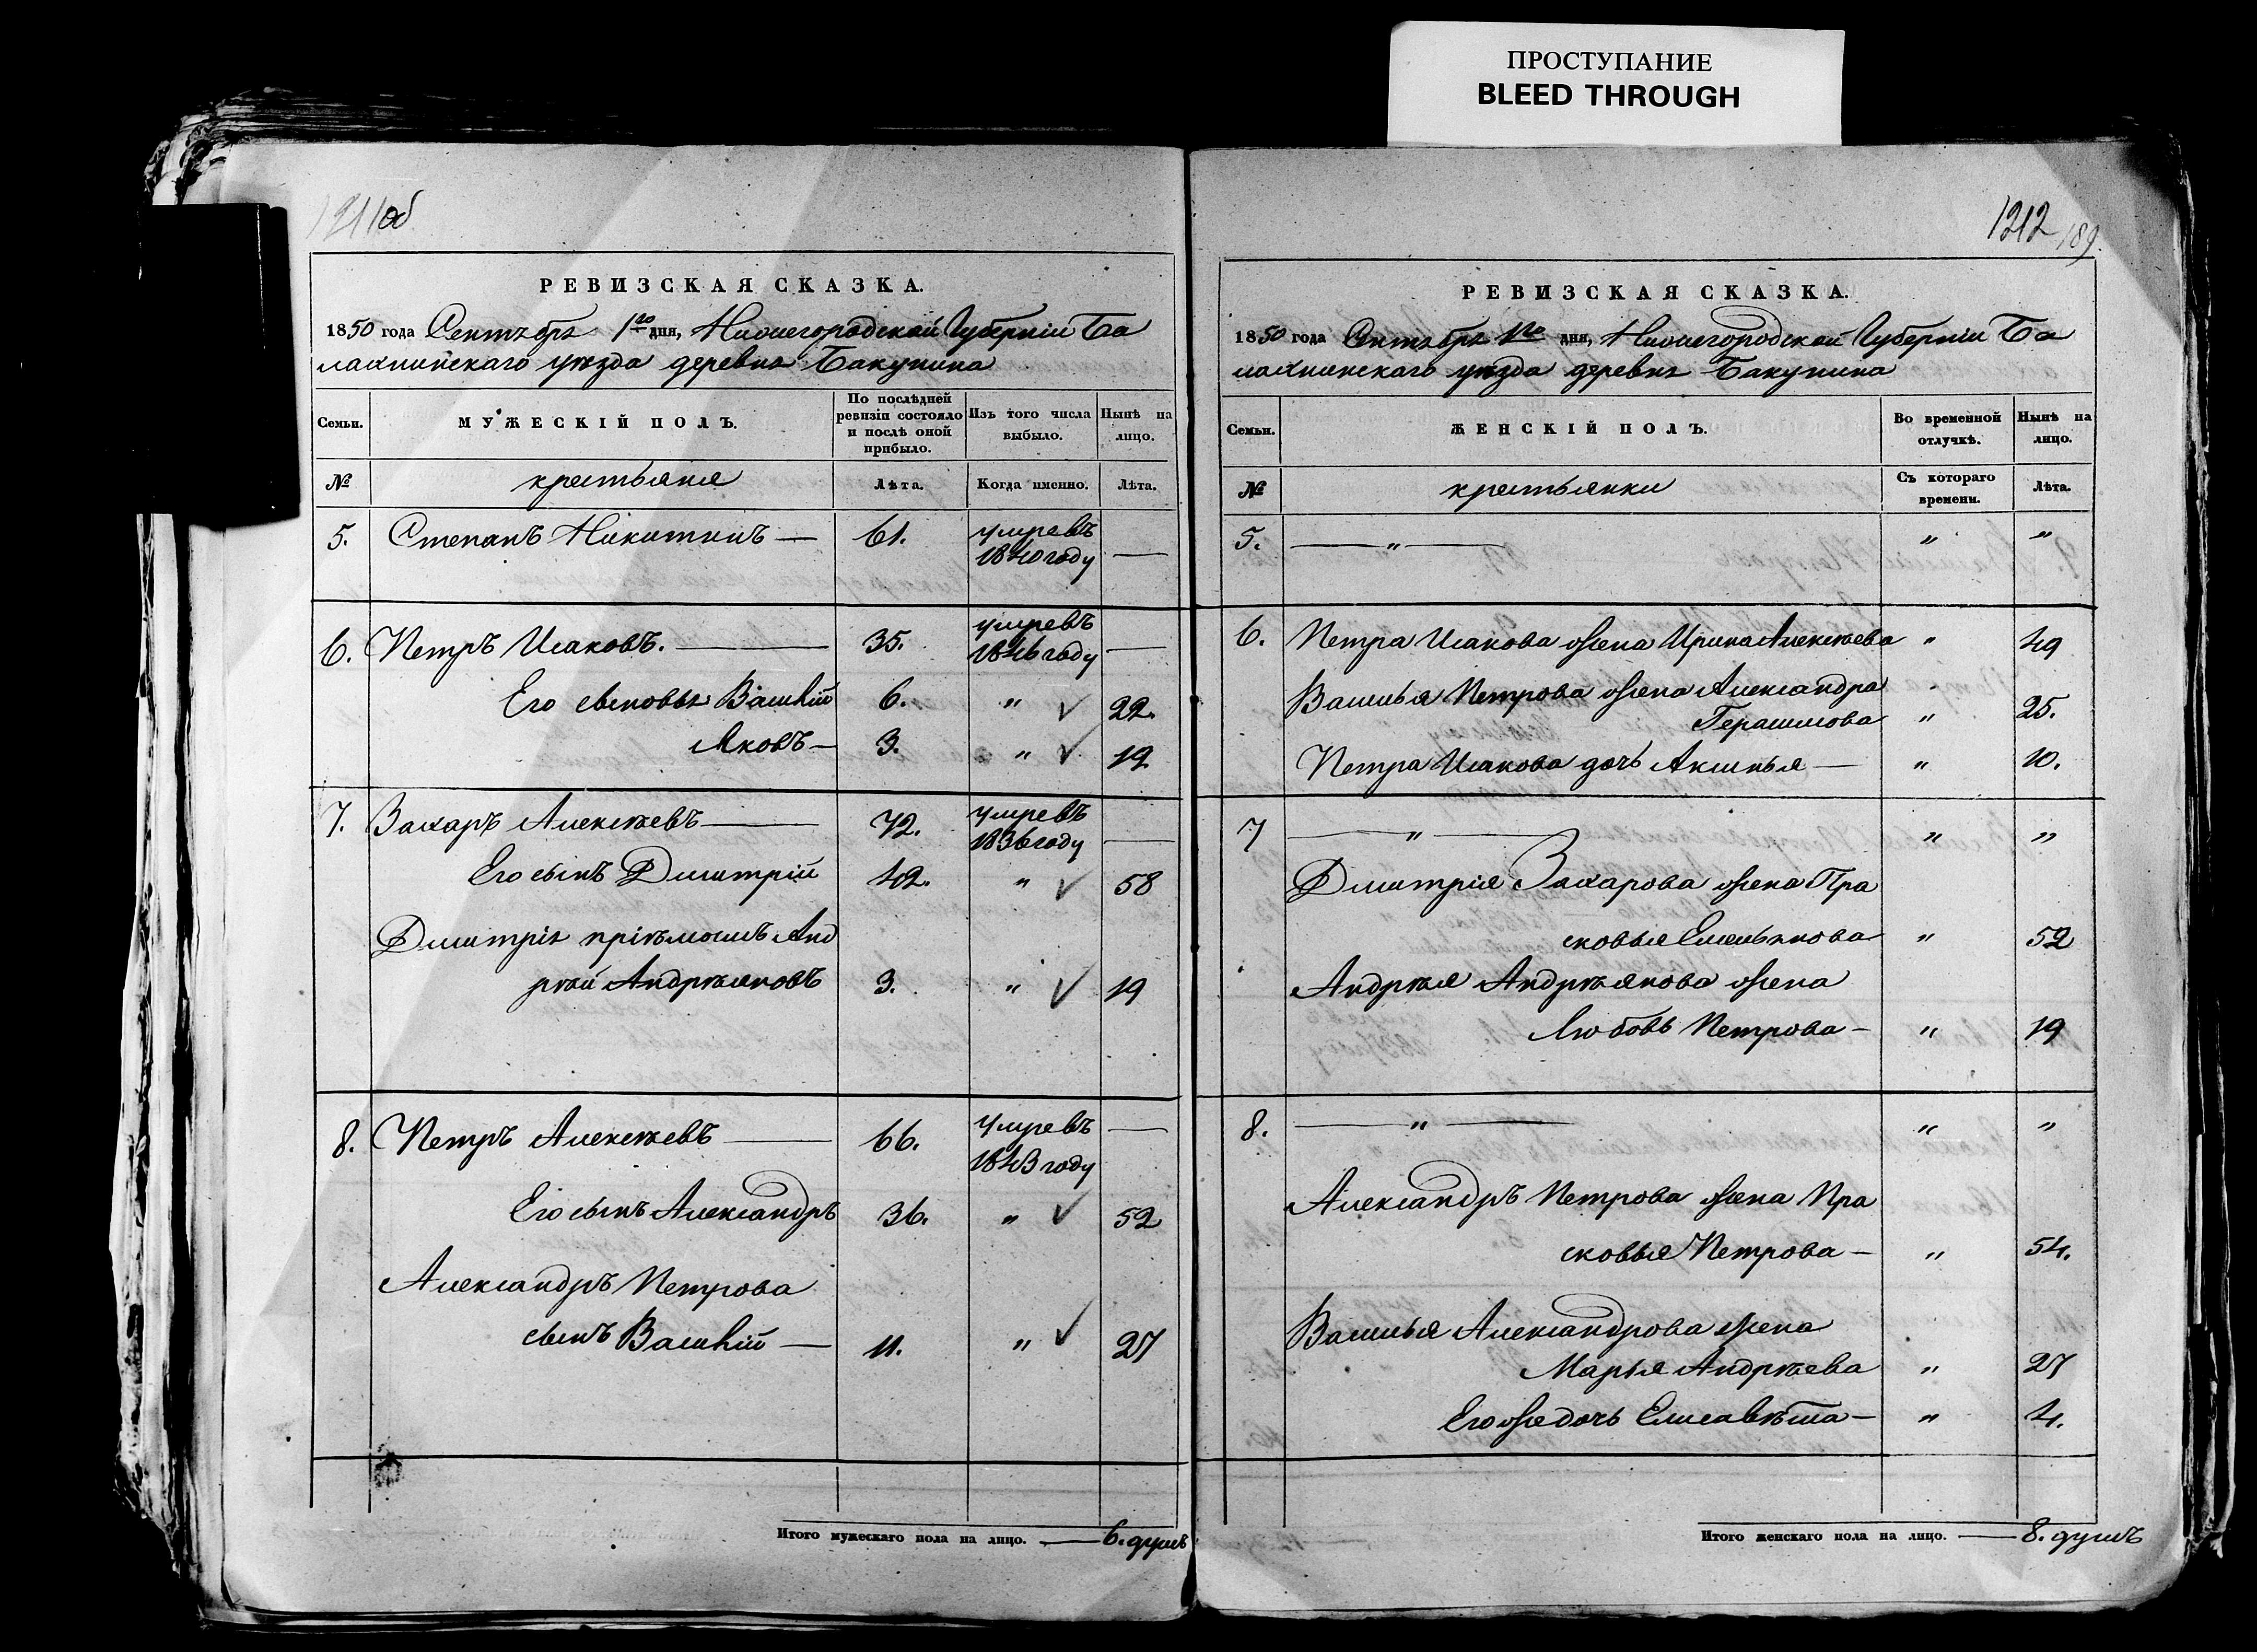 ПРОСТУПАНИЕ
BLEED THROUGH
1211об
РЕВИЗСКАЯ СКАЗКА.
1850 года Сентебре 1го дня, Нижегородской Губерніи Ба
лахнинскаго уѣзда деревне Бакунина
Семьи.
МУЖЕСКІЙ ПОЛЪ.
По послѣдней ревизіи состояло и послѣ оной прибыло.
Изъ того числа выбыло.
Нынѣ на лицо.
№
крестьяня
Лѣта.
Когда именно.
Лѣта.
5. Степанъ Никитинъ — 61. умревъ 1840 году —
6. Петръ Исаковъ. — 35. умревъ 1846 году —
Его сыновья Василій 6. " 22.
Яковъ — 3. " 19.
7. Захаръ Алексѣевъ — 72. умревъ 1836 году —
Его сынъ Дмитрій 42. " 58
Дмитрія пріѣмышъ Анд
рѣй Андрѣяновъ 3. " 19
8. Петръ Алексѣевъ — 66. умревъ 1843 году —
Его сынъ Александръ 36. " 52
Александръ Петрова
сынъ Василій — 11. " 27
Итого мужескаго пола на лицо. — 6. душъ
1212
189.
РЕВИЗСКАЯ СКАЗКА.
1850 года Сентебре 1го дня, Нижегородской Губерніи Ба
лахнинскаго уѣзда деревне Бакунина
Семьи.
ЖЕНСКІЙ ПОЛЪ.
Во временной отлучкѣ.
Нынѣ на лицо.
№
крестьянки
Съ котораго времени.
Лѣта.
5. — " — " "
6. Петра Исакова жена Ирина Алексѣева " 49
Василья Петрова жена Александра
Герасимова " 25.
Петра Исакова дочь Аксинья — " 10.
7 — " — " "
Дмитрія Захарова жена Пра
сковья Емельянова " 52
Андрѣя Андрѣянова жена
Любовь Петрова — " 19
8. — " — " "
Александръ Петрова жена Пра
сковья Петрова — " 54.
Василья Александрова жена
Марья Андрѣева " 27
Его же дочь Елисавѣта — " 4.
Итого женскаго пола на лицо. — 8. душъ